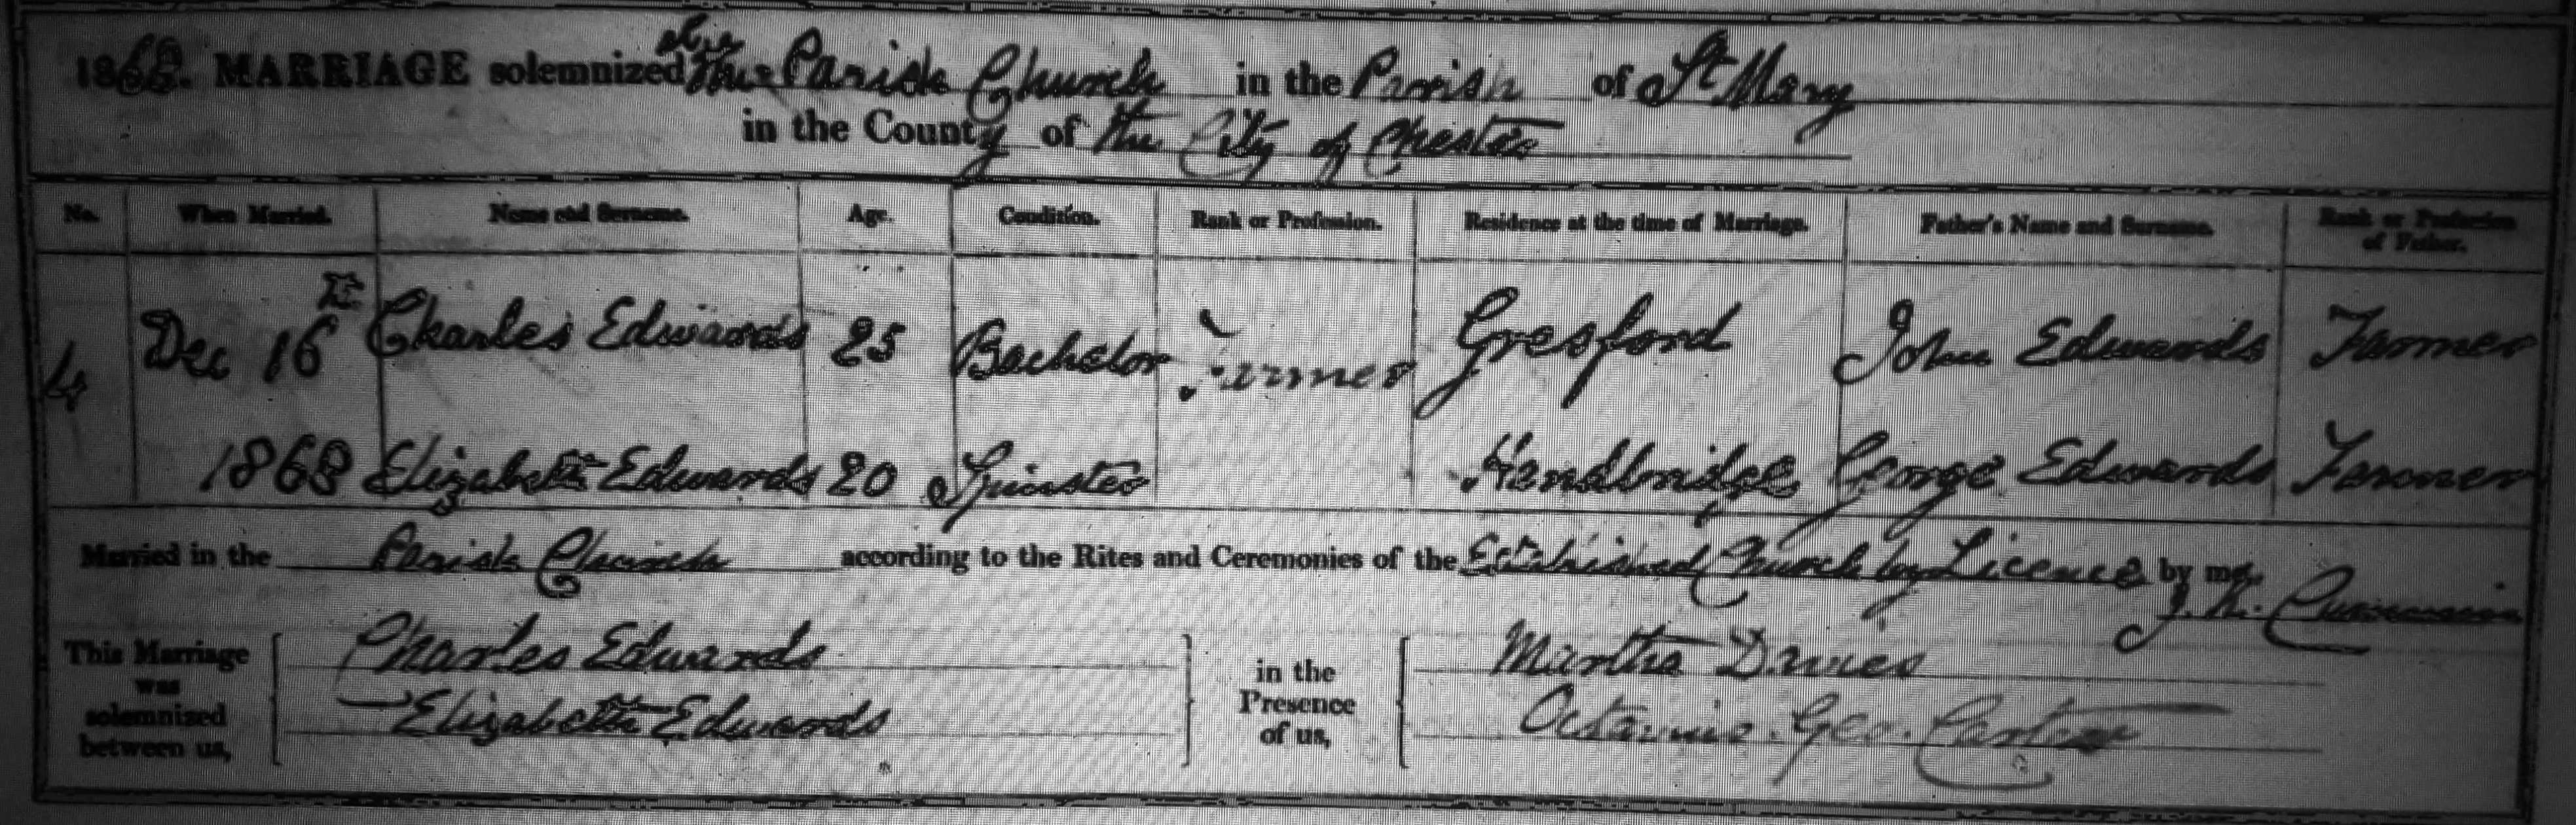 1868. MARRIAGE solemnized at the Parish Church in the Parish of St Mary
in the County of the City of Chester
No. When Married. Name and Surname. Age. Condition. Rank or Profession. Residence at the time of Marriage. Father's Name and Surname. Rank or Profession of Father.
4 Dec 16th Charles Edwards 25 Bachelor Farmer Gresford John Edwards Farmer
1868 Elizabeth Edwards 20 Spinster Handbridge George Edwards Farmer
Married in the Parish Church according to the Rites and Ceremonies of the Established Church by Licence by me,
This Marriage was solemnized between us,
Charles Edwards
Elizabeth Edwards
in the Presence of us,
Martha Davies
Geo. Carter